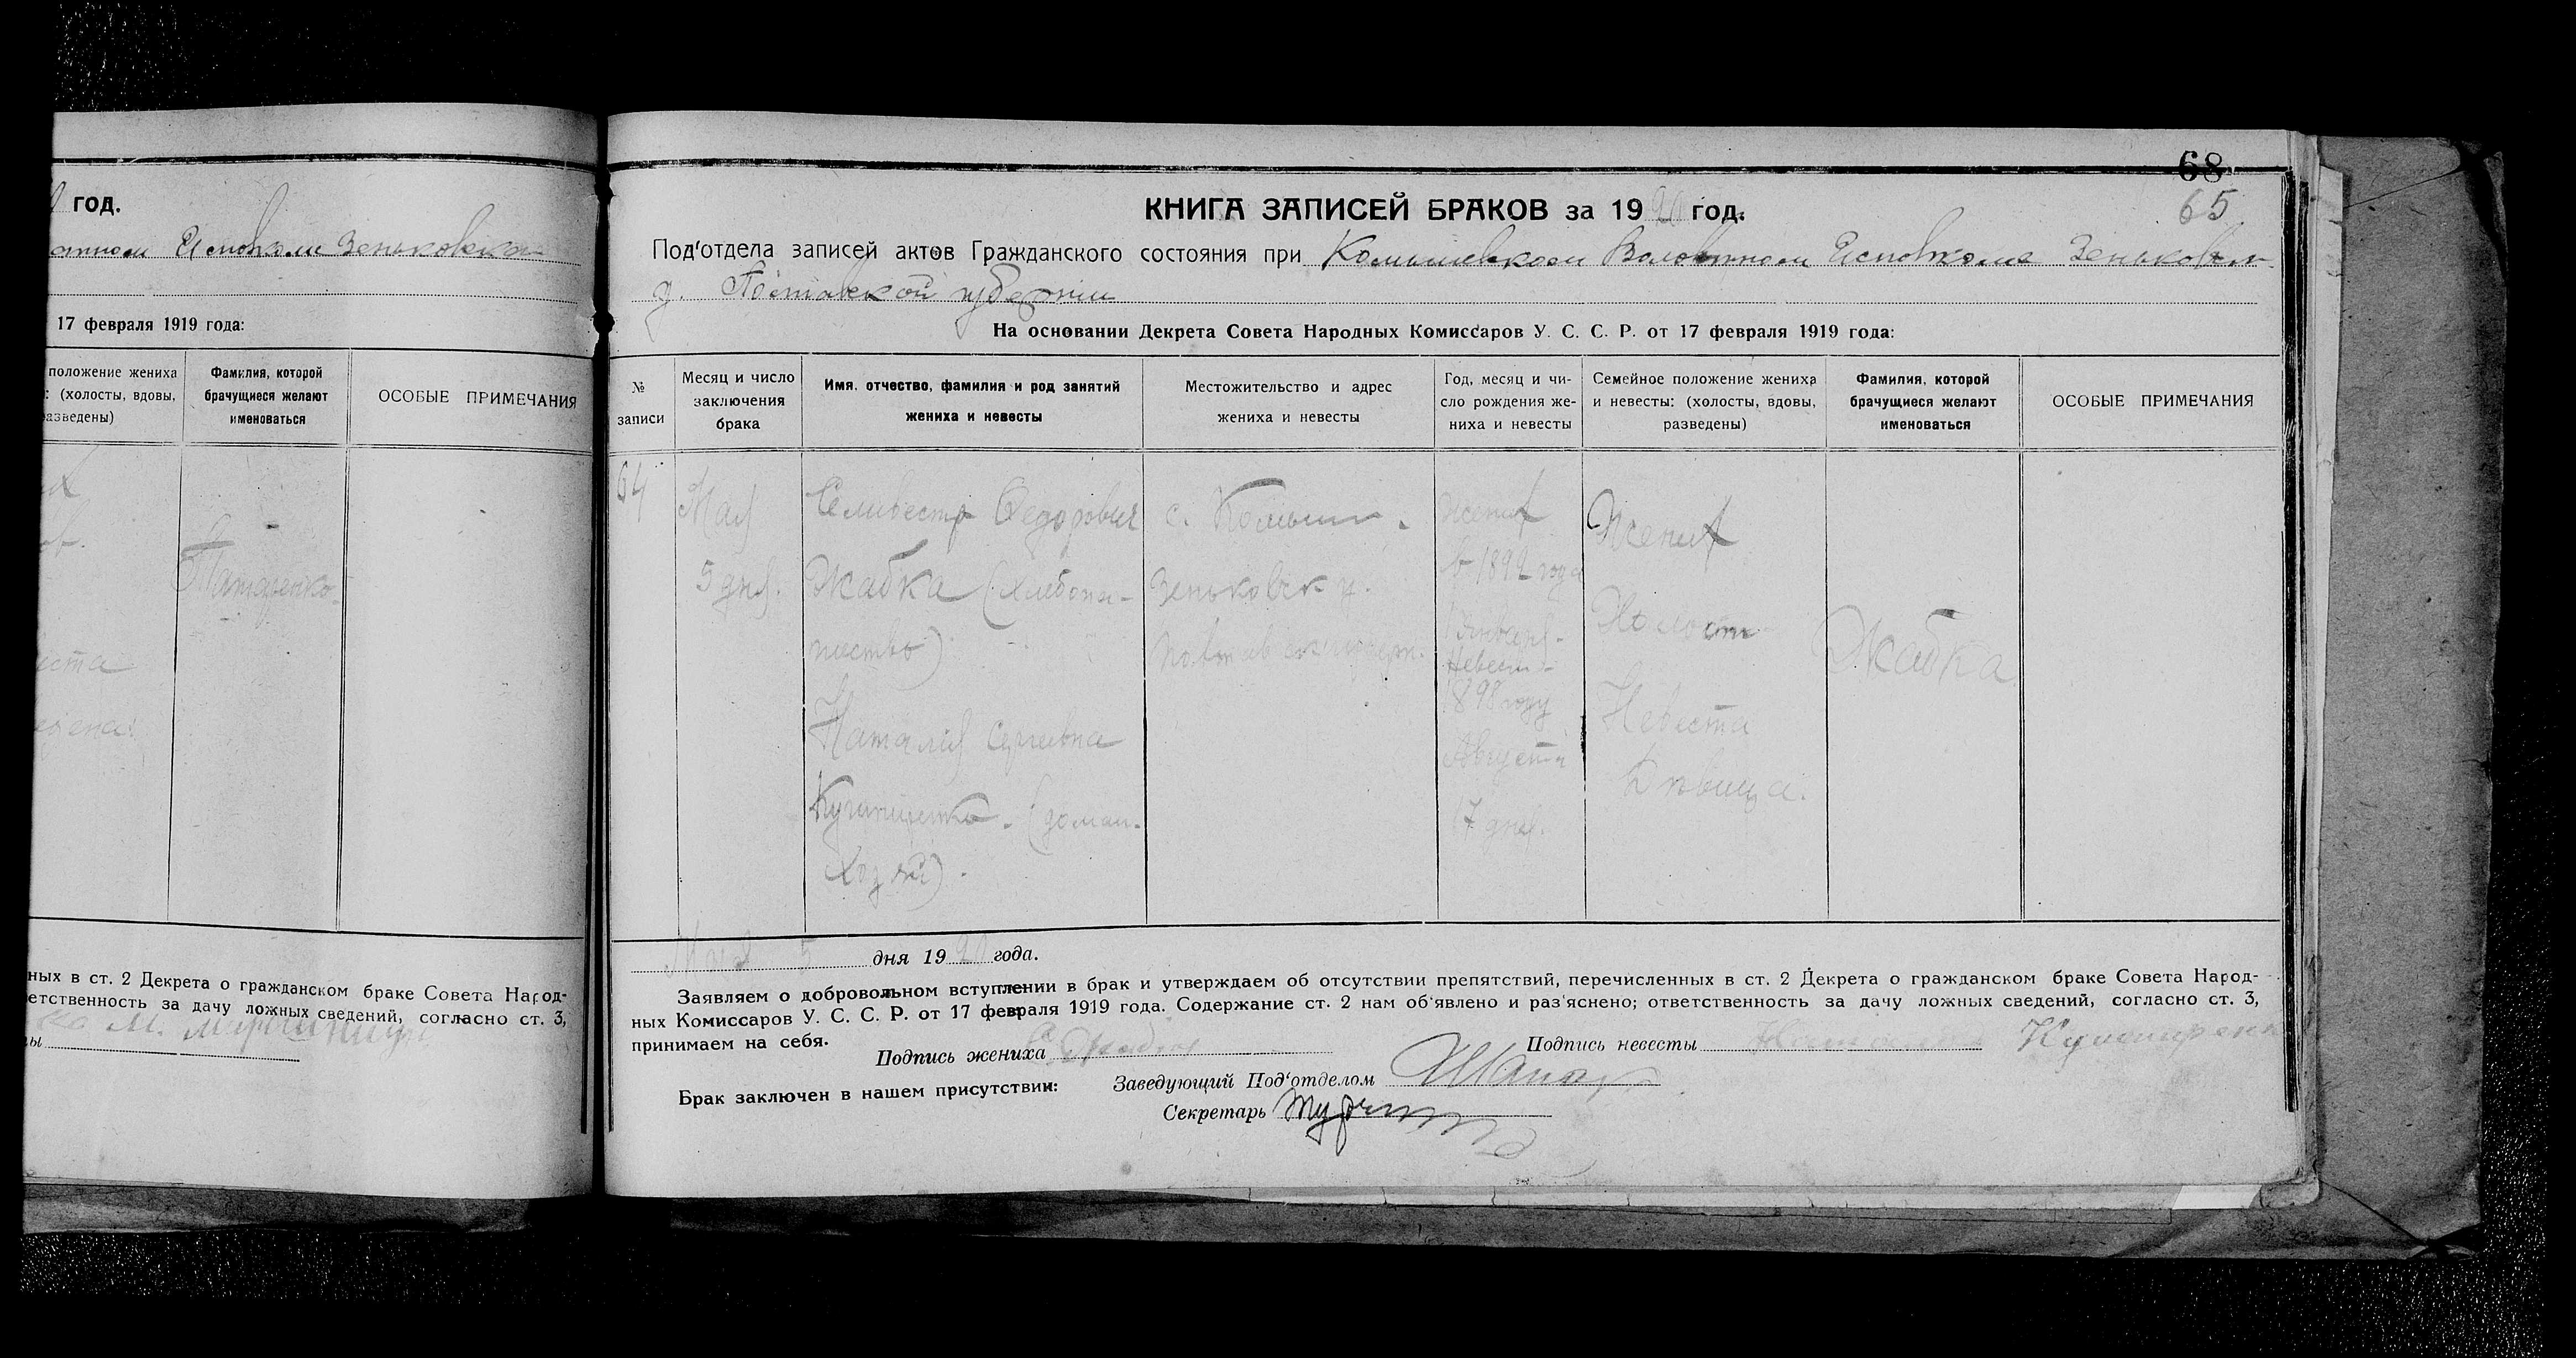 год.
Исполкоме Зеньковска
17 февраля 1919 года:
положение жениха
(холосты, вдовы,
разведены)
Фамилия, которой
брачущиеся желают
именоваться
ОСОБЫЕ ПРИМЕЧАНИЯ
ных в ст. 2 Декрета о гражданском браке Совета Народ-
етственность за дачу ложных сведений, согласно ст. 3,
68
65
КНИГА ЗАПИСЕЙ БРАКОВ за 1920 год.
Под'отдела записей актов Гражданского состояния при Комышевском Волостном Исполкоме Зеньковск
у. Полтавской губернии
На основании Декрета Совета Народных Комиссаров У. С. С. Р. от 17 февраля 1919 года:
№
записи
Месяц и число
заключения
брака
Имя, отчество, фамилия и род занятий
жениха и невесты
Местожительство и адрес
жениха и невесты
Год, месяц и чи-
сло рождения же-
ниха и невесты
Семейное положение жениха
и невесты: (холосты, вдовы,
разведены)
Фамилия, которой
брачущиеся желают
именоваться
ОСОБЫЕ ПРИМЕЧАНИЯ
64
Мая
5 дня.
Селивестр Федорович
Жабка (хлебопа-
шество)
Наталия Сергеевна
(домаш.
хозяй).
с. Комыши.
Зеньковск у.
Полтавск губерн.
Жених
в 1892 года
Января
Невеста
1898 году
Августа
17 дня.
Жених
Холост
Невеста
Девица.
Жабка
Мая 5 дня 1920 года.
Заявляем о добровольном вступлении в брак и утверждаем об отсутствии препятствий, перечисленных в ст. 2 Декрета о гражданском браке Совета Народ-
ных Комиссаров У. С. С. Р. от 17 февраля 1919 года. Содержание ст. 2 нам об'явлено и раз'яснено; ответственность за дачу ложных сведений, согласно ст. 3,
принимаем на себя.
Подпись жениха С. Жабка
Подпись невесты Наталия
Брак заключен в нашем присутствии:
Заведующий Под'отделом
Секретарь